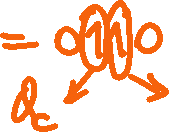 = 0110
Qc